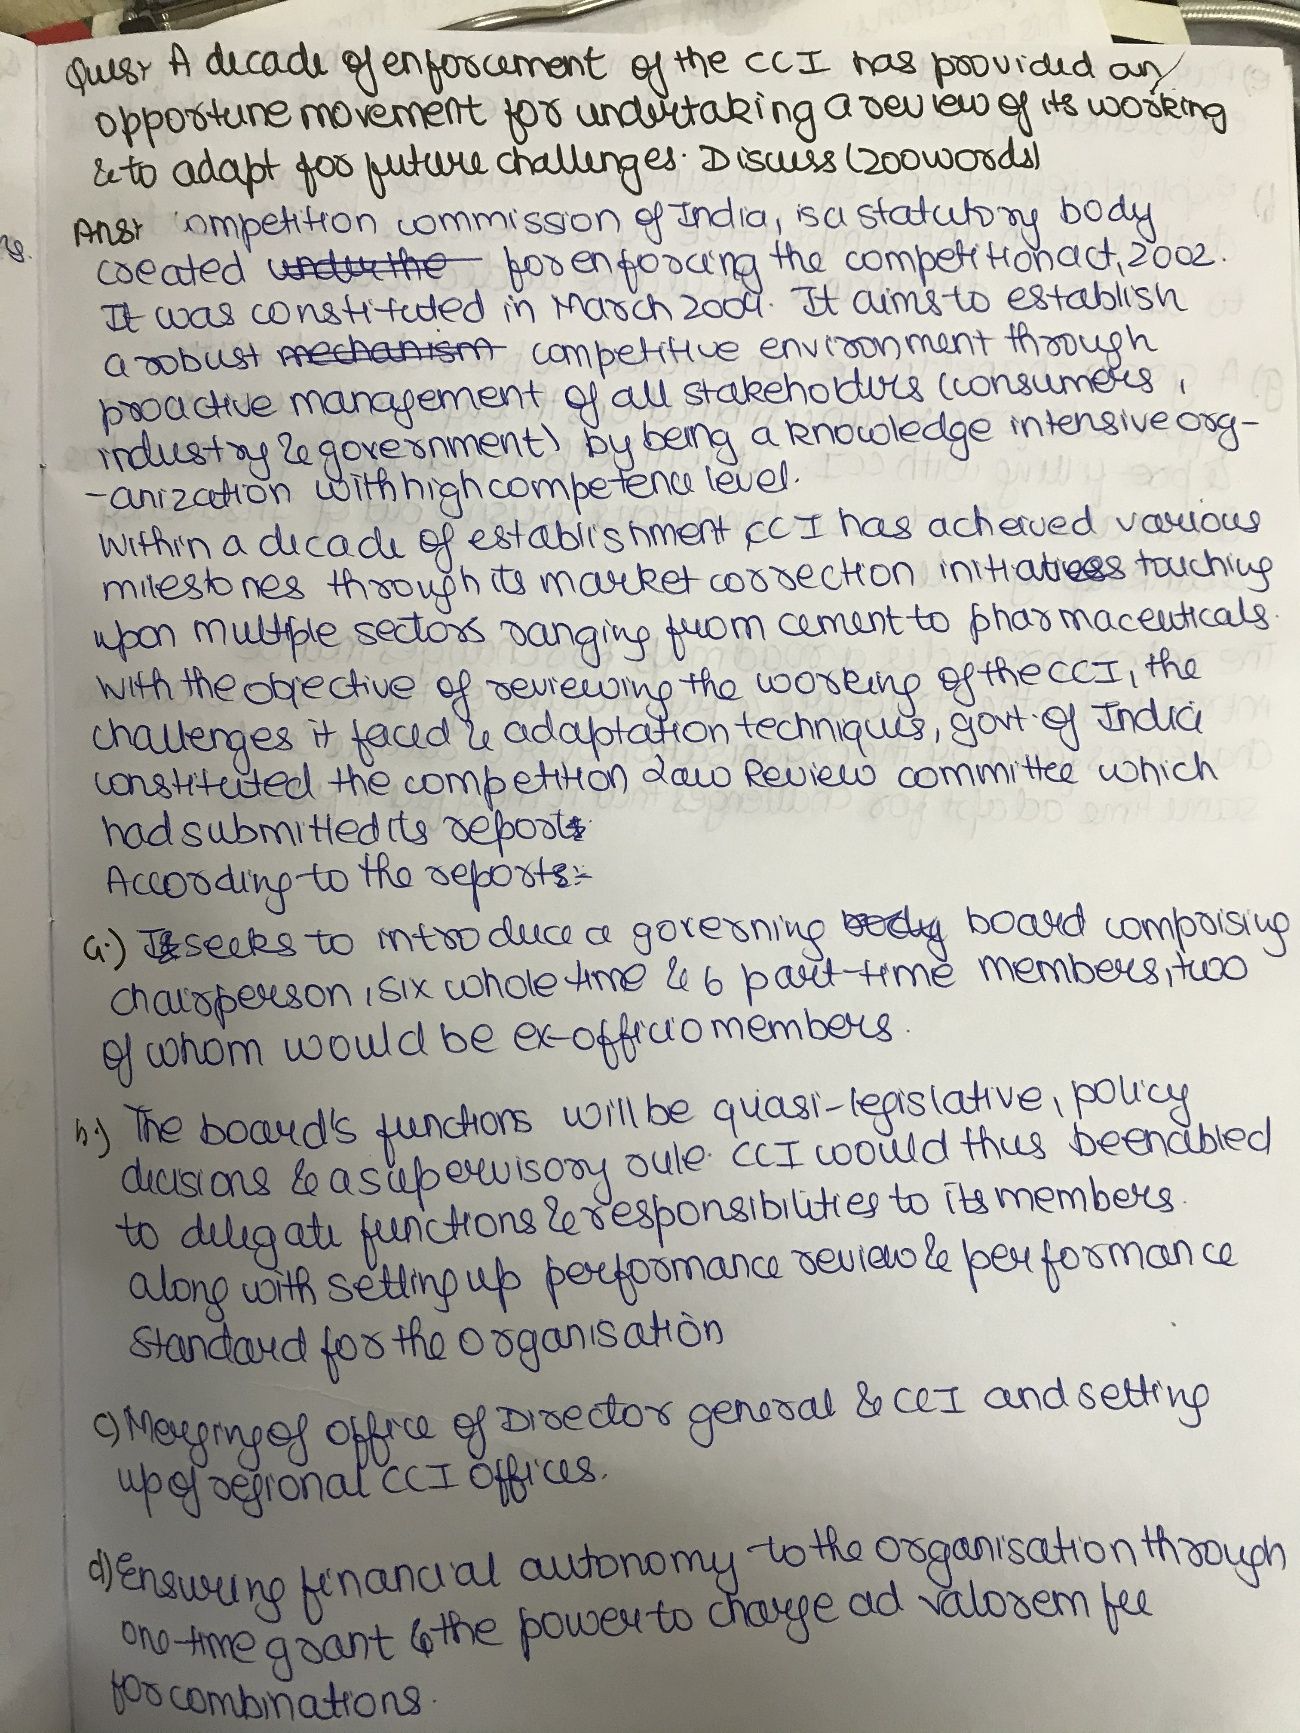 Ques→ A decade of enforcement of the CCI has provided an
opportune movement for undertaking a review of its working
& to adapt for future challenges. Discuss (200 words)
Ans→ ompetition commission of India, is a statutory body
created under the for enforcing the competition act, 2002.
It was constituted in March 2009. It aims to establish
a robust mechanism competitive environment through
proactive management of all stakeholders (consumers,
industry & government) by being a knowledge intensive org-
-anization with high competence level.
Within a decade of establishment CCI has acheived various
milestones through its market correction initiatives touching
upon multiple sectors ranging from cement to pharmaceuticals.
With the objective of reviewing the working of the CCI, the
challenges it faced & adaptation techniques, govt. of India
constituted the competition Law Review committee which
had submitted its report
According to the reports:-
a.) It seeks to introduce a governing body board comprising
chairperson, six whole time & 6 part-time members, two
of whom would be ex-officio members.
b.) The board's functions will be quasi-legislative, policy
decisions & a supervisory role. CCI would thus be enabled
to delegate functions & responsibilities to its members.
along with setting up performance review & performance
standard for the organisation
c) Merging of office of Director general & CCI and setting
up of regional CCI offices.
d) Ensuring financial autonomy to the organisation through
one-time grant & the power to charge ad valorem fee
for combinations.